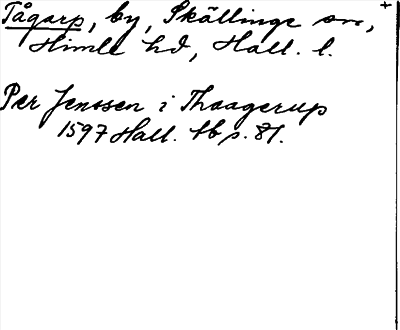 Tågarp, by, Skällinge sn, +
Himle hd, Hall. l.
Per Jenssen i Thaagerup
1597 Hall. tb p. 81.